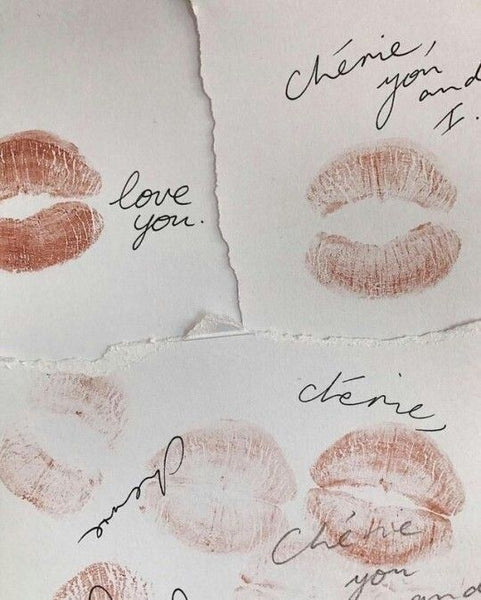 love
you.
Chérie,
you
and
I.
chérie,
Cherie
Chérie,
you
and